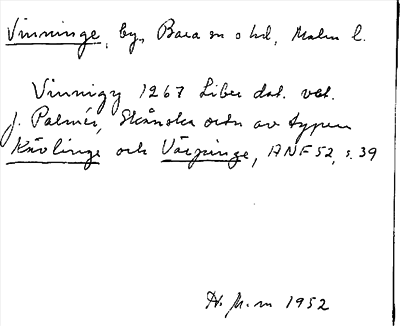 Vinninge, by, Bara sn o hd, Malm l.
Vinnigy 1267 Liber dat. vet.
J. Palmér, Skånska ortn av typen
Kävlinge och Värpinge, ANF 52, s. 39
1952